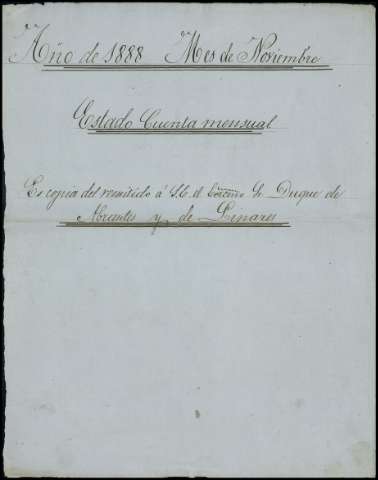 Año de 1888 Mes de Noviembre
Estado Cuenta mensual
Es copia del remitido á S.E. el Excmo Sr Duque de
Abrantes y de Linares